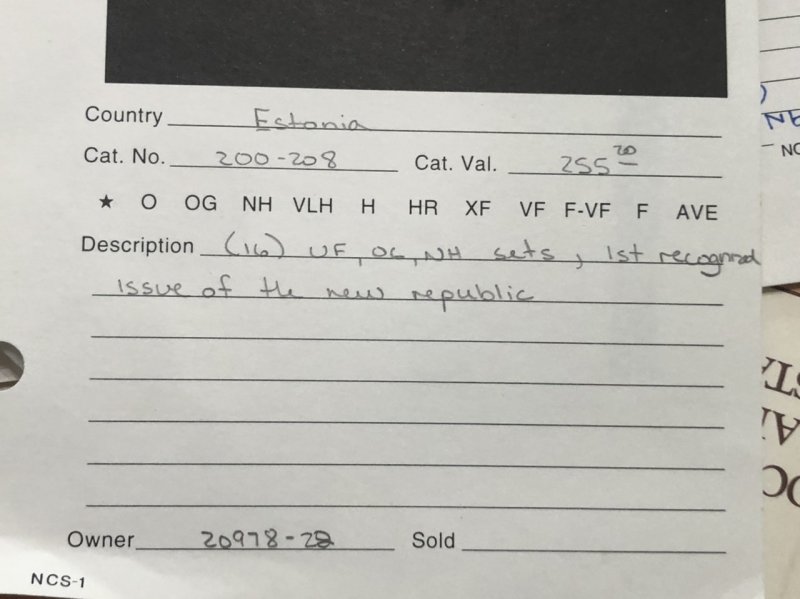 Country Estonia
Cat. No. 200-208 Cat. Val. 255 20
★ O OG NH VLH H HR XF VF F-VF F AVE
Description (16) VF, OG, NH sets, 1st recognized
issue of the new republic
Owner 20978-22 Sold
NCS-1